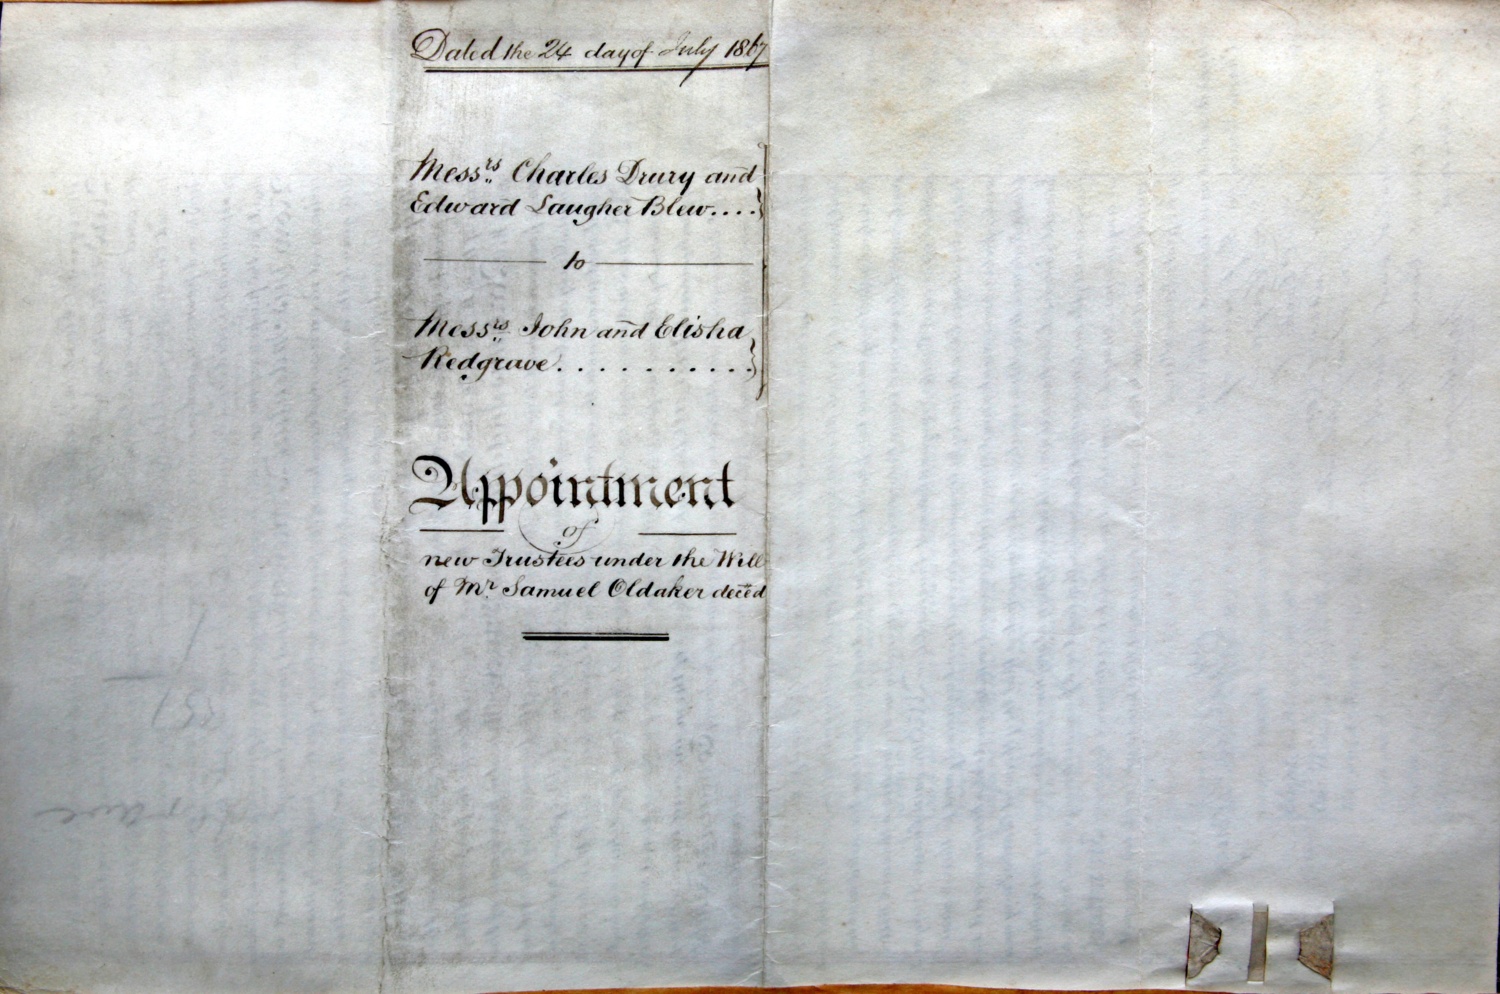 Dated the 24 day of July 1867
Messrs Charles Drury and
Edward Laugher Blew....
to
Messrs John and Elisha
Redgrave..........
Appointment
of
new Trustees under the Will
of Mr. Samuel Oldaker deced